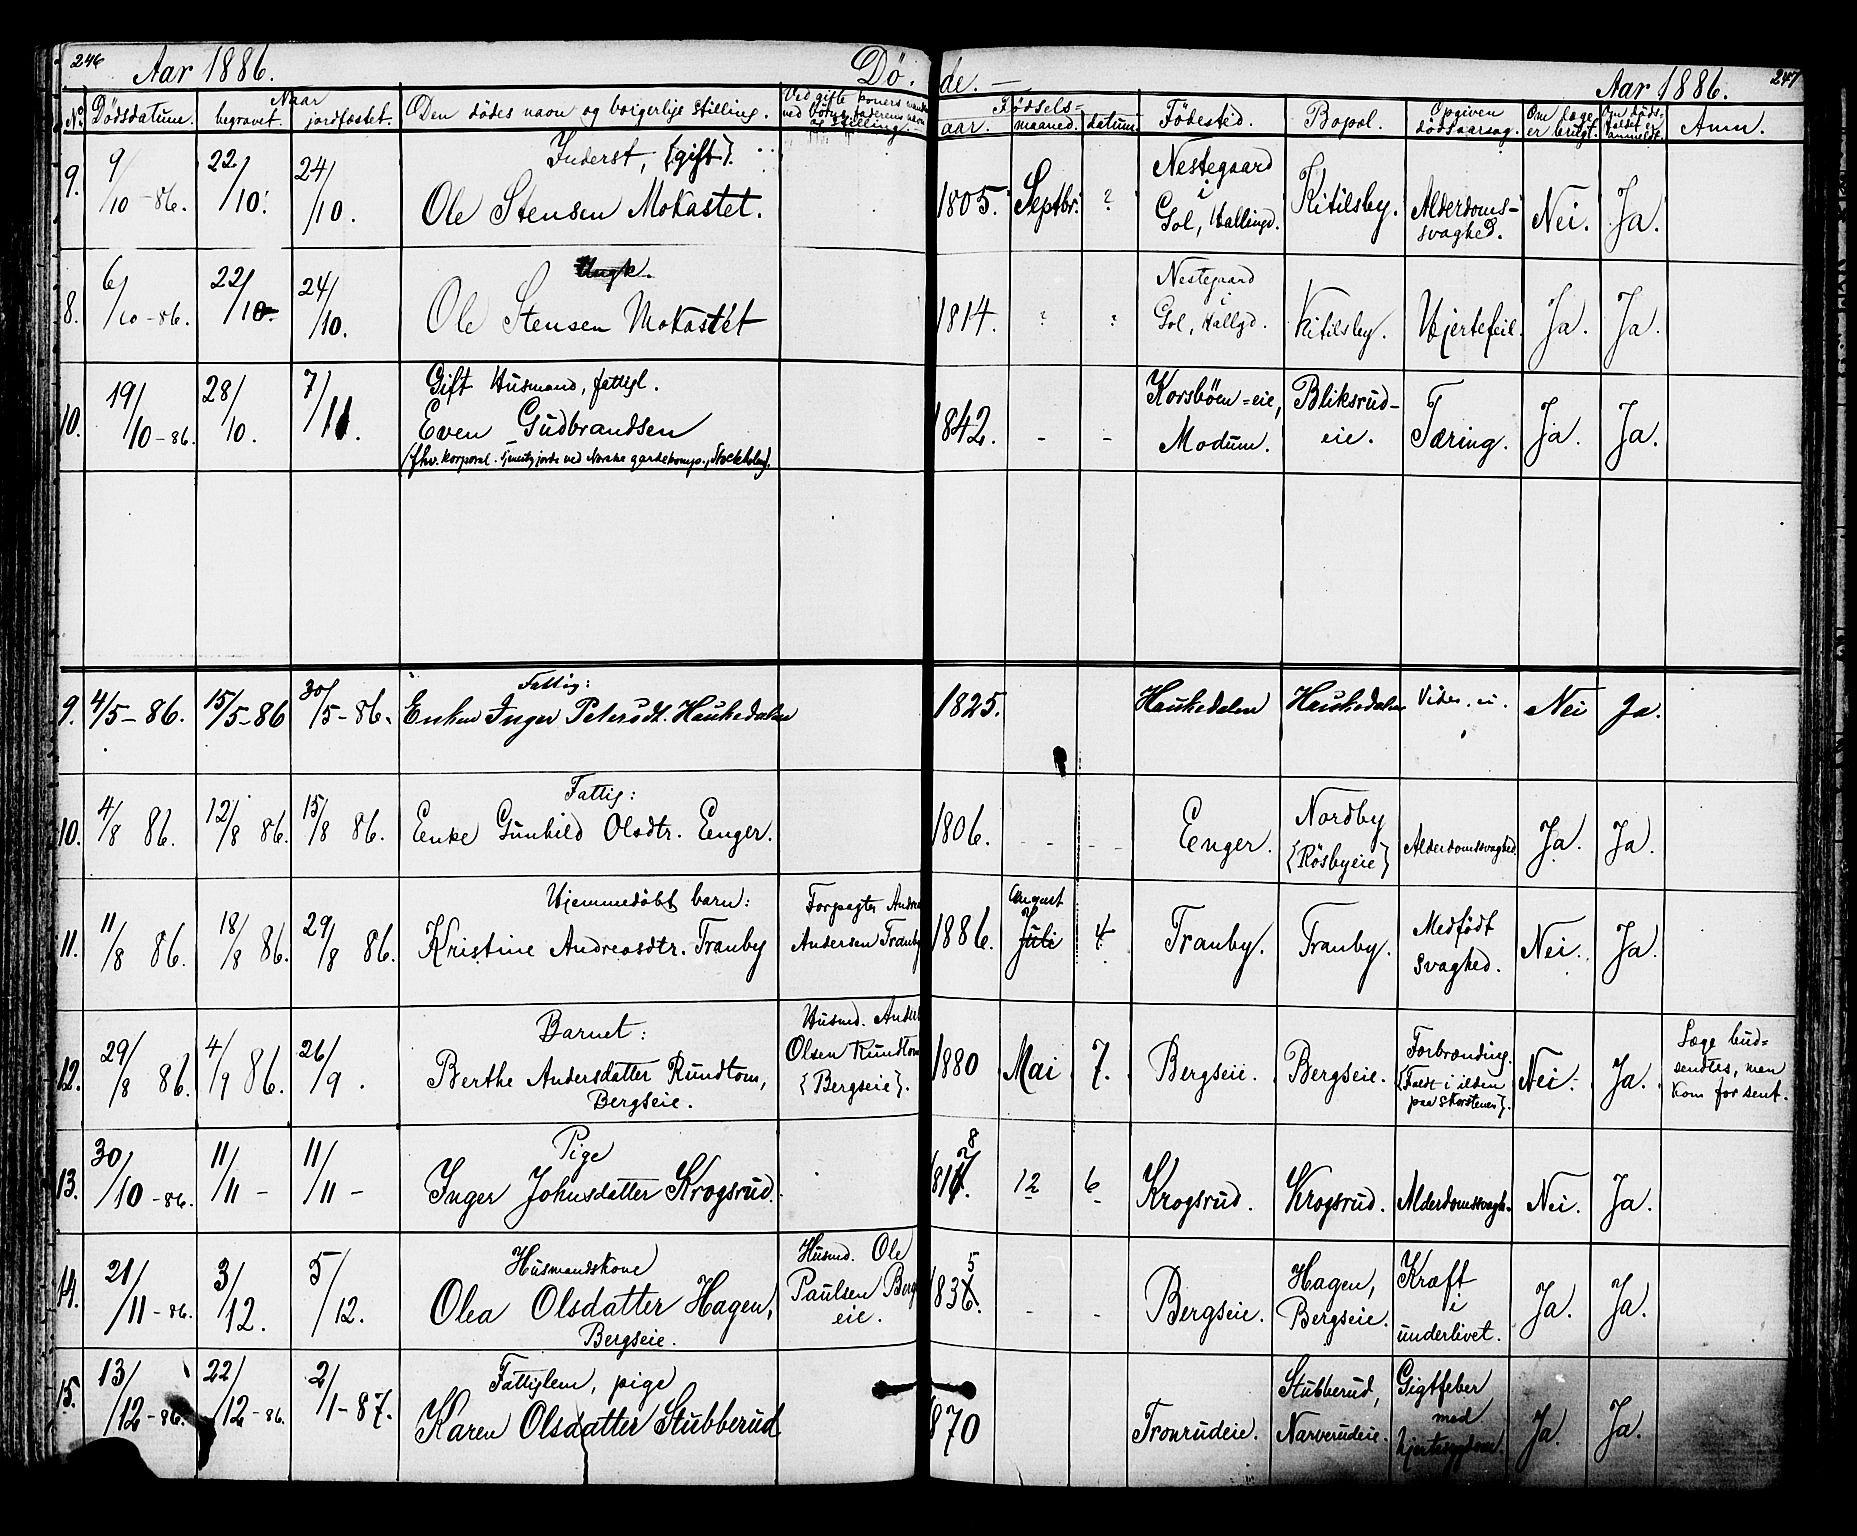 246 Aar 1886. Dø. de. — Aar 1886. 247
No. Dødsdatum. Naar begravet. jordfæstet. Den dødes navn og borgerlige stilling. Ved gifte koners mands ved børns faderens navn og stilling. Fødsels- aar. maaned. datum. Fødested. Bopæl. Opgiven dødsaarsag. Om læge er brugt. Om døds-faldet er anmeldt. Anm.
Inderst, {gift}.
9. 9/10-86. 22/10. 24/10. Ole Stensen Mokastet. 1805. Septbr. ? Nestegaard i Gol, Hallingd. Kitilsby. Alderdoms-svaghed. Nei. Ja.
Ungk.
8. 6/10-86. 22/10. 24/10. Ole Stensen Mokastet 1814. ? ? Nestegaard i Gol, Hallgd. Kitilsby. Hjertefeil. Ja. Ja.
Gift Husmand, fattigl.
10. 19/10-86. 28/10. 7/11. Even Gudbrandsen 1842. - - Korsbøen=eie, Modum. Bliksrud-eie. Tæring. Ja. Ja.
(fhv. korporal. ved Norske gardekomp., Stockholm).
Fattig:
9. 4/5-86. 15/5-86 30/5-86. Enken Inger Petersdt. Haukedalen 1825. Haukedalen Haukedalen Vides. ei. Nei Ja.
Fattig:
10. 4/8 86. 12/8 86. 15/8 86. Enke Gunhild Olsdtr. Enger. 1806. - - Enger. Nordby {Røsbyeie} Alderdomssvaghed. Ja. Ja.
Hjemmedøbt barn:
11. 11/8 86. 18/8 86. 29/8 86. Kristine Andreasdtr. Tranby Forpagter Andreas Andersen Tranby 1886. August Juli 4. Tranby. Tranby. Medfødt svaghed. Nei. Ja.
Barnet:
12. 29/8 86. 4/9 86. 26/9. Berthe Andersdatter Rundtom, Husmd. Anders Olsen Rundtom {Bergseie}. 1880 Mai 7. Bergseie. Bergseie. Forbrænding. {Faldt i ilden paa skorstenen}. Nei. Ja. Læge bud=sendtes, men kom for sent.
Bergseie.
Pige
13. 30/10-86. 11/11- 11/11- Inger Johnsdatter Krogsrud. 12 6 Krogsrud. Krogsrud. Alderdomssvagh. Nei. Ja.
Husmandskone
14. 21/11-86. 3/12. 5/12. Olea Olsdatter Hagen, Husmd. Ole Paulsen Bergeie. 5 1836. - - Bergseie. Hagen, Bergseie. Kræft i underlivet. Ja. Ja.
Bergseie.
Fattiglem, pige
15. 13/12-86. 22/12-86. 2/1-87. Karen Olsdatter Stubberud 870 Tronrudeie. Stubberud, Narverudeie. Gigtfeber med hjertesygdom. Ja. Ja.